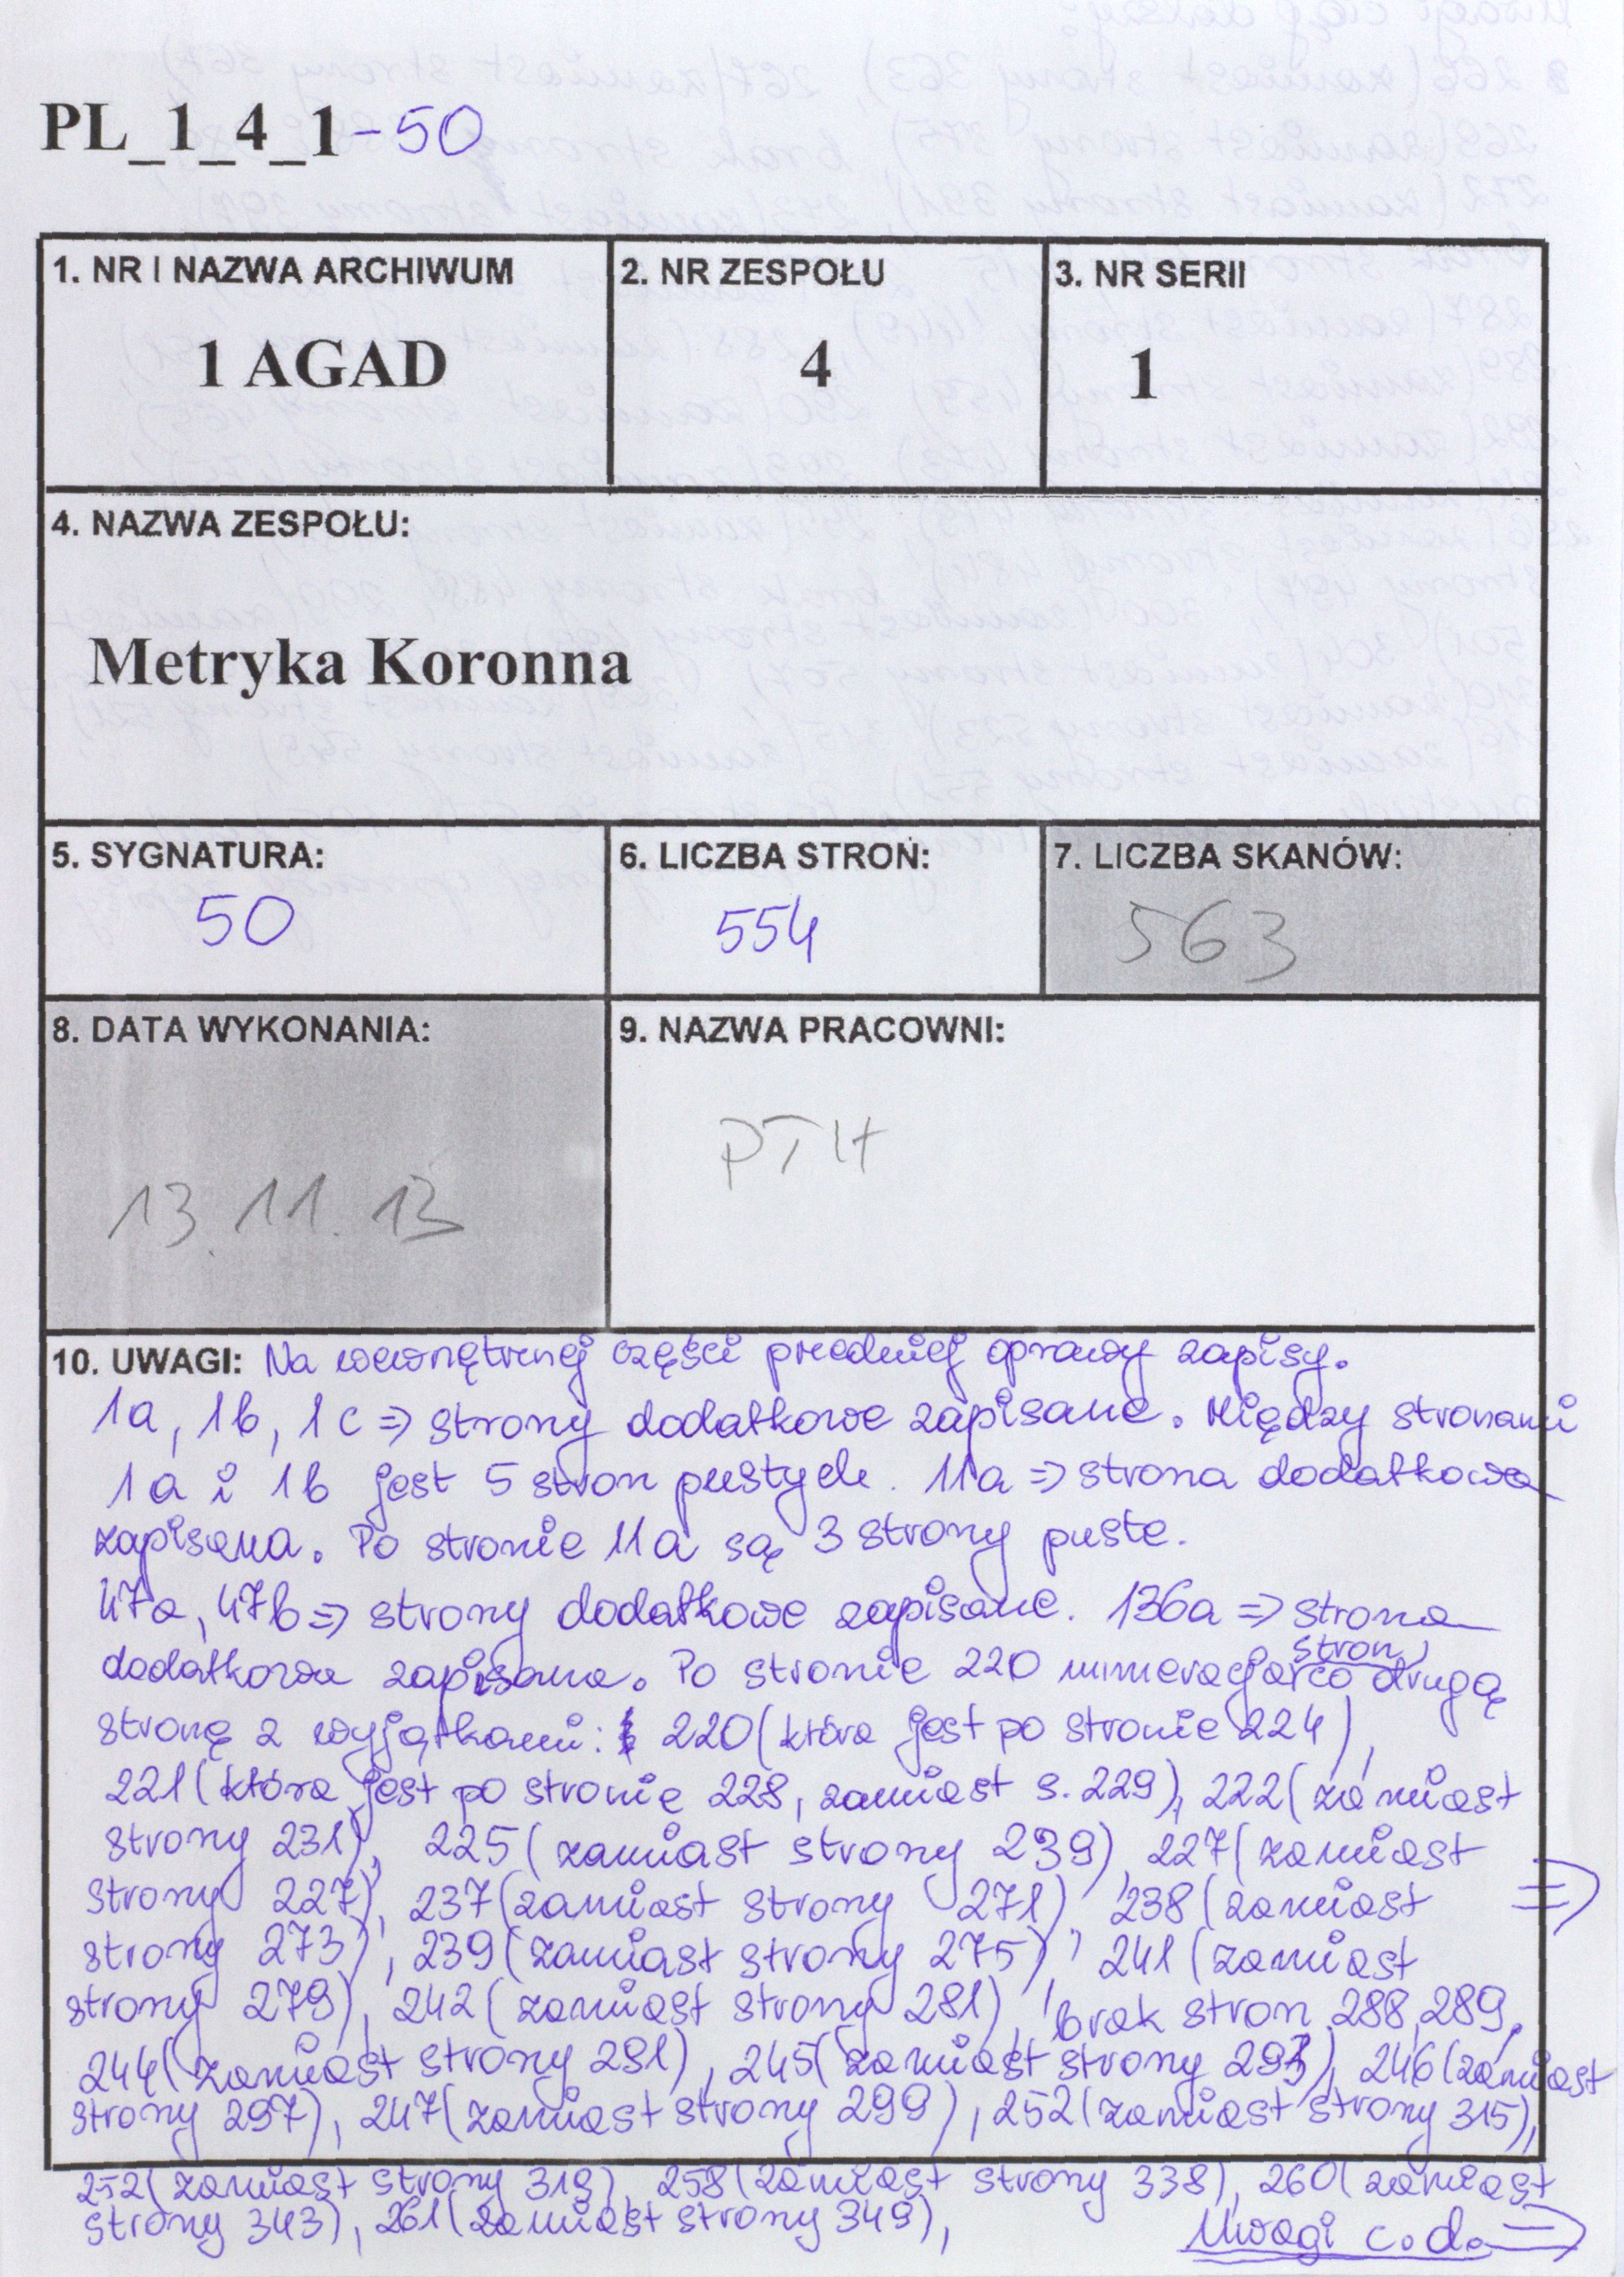 PL_1_4_1-50
1. NR I NAZWA ARCHIWUM
1 AGAD
2. NR ZESPOŁU
4
3. NR SERII
1
4. NAZWA ZESPOŁU:
Metryka Koronna
5. SYGNATURA:
50
6. LICZBA STRON:
554
7. LICZBA SKANÓW:
563
8. DATA WYKONANIA:
13.11.13
9. NAZWA PRACOWNI:
PTH
10. UWAGI: Na wewnętrznej części przedniej oprawy zapisy.
1a, 1b, 1c => strony dodatkowe zapisane. Między stronami
1a i 1b jest 5 stron pustych. 11a => strona dodatkowa
zapisana. Po stronie 11a są 3 strony puste.
47a, 47b => strony dodatkowe zapisane. 136a => strona
dodatkowa zapisana. Po stronie 220 numeracja stron co drugą
stronę z wyjątkami: 220 (która jest po stronie 224),
221 (która jest po stronie 228, zamiast s. 229), 222 (zamiast
strony 231), 225 (zamiast strony 239), 227 (zamiast
strony 227), 237 (zamiast strony 271), 238 (zamiast =>
strony 273), 239 (zamiast strony 275), 241 (zamiast
strony 279), 242 (zamiast strony 281), brak stron 288, 289,
244 (zamiast strony 291), 245 (zamiast strony 293), 246 (zamiast
strony 297), 247 (zamiast strony 299), 252 (zamiast strony 315),
252 (zamiast strony 319), 258 (zamiast strony 338), 260 (zamiast
strony 343), 261 (zamiast strony 349),
Uwagi c.d. =>